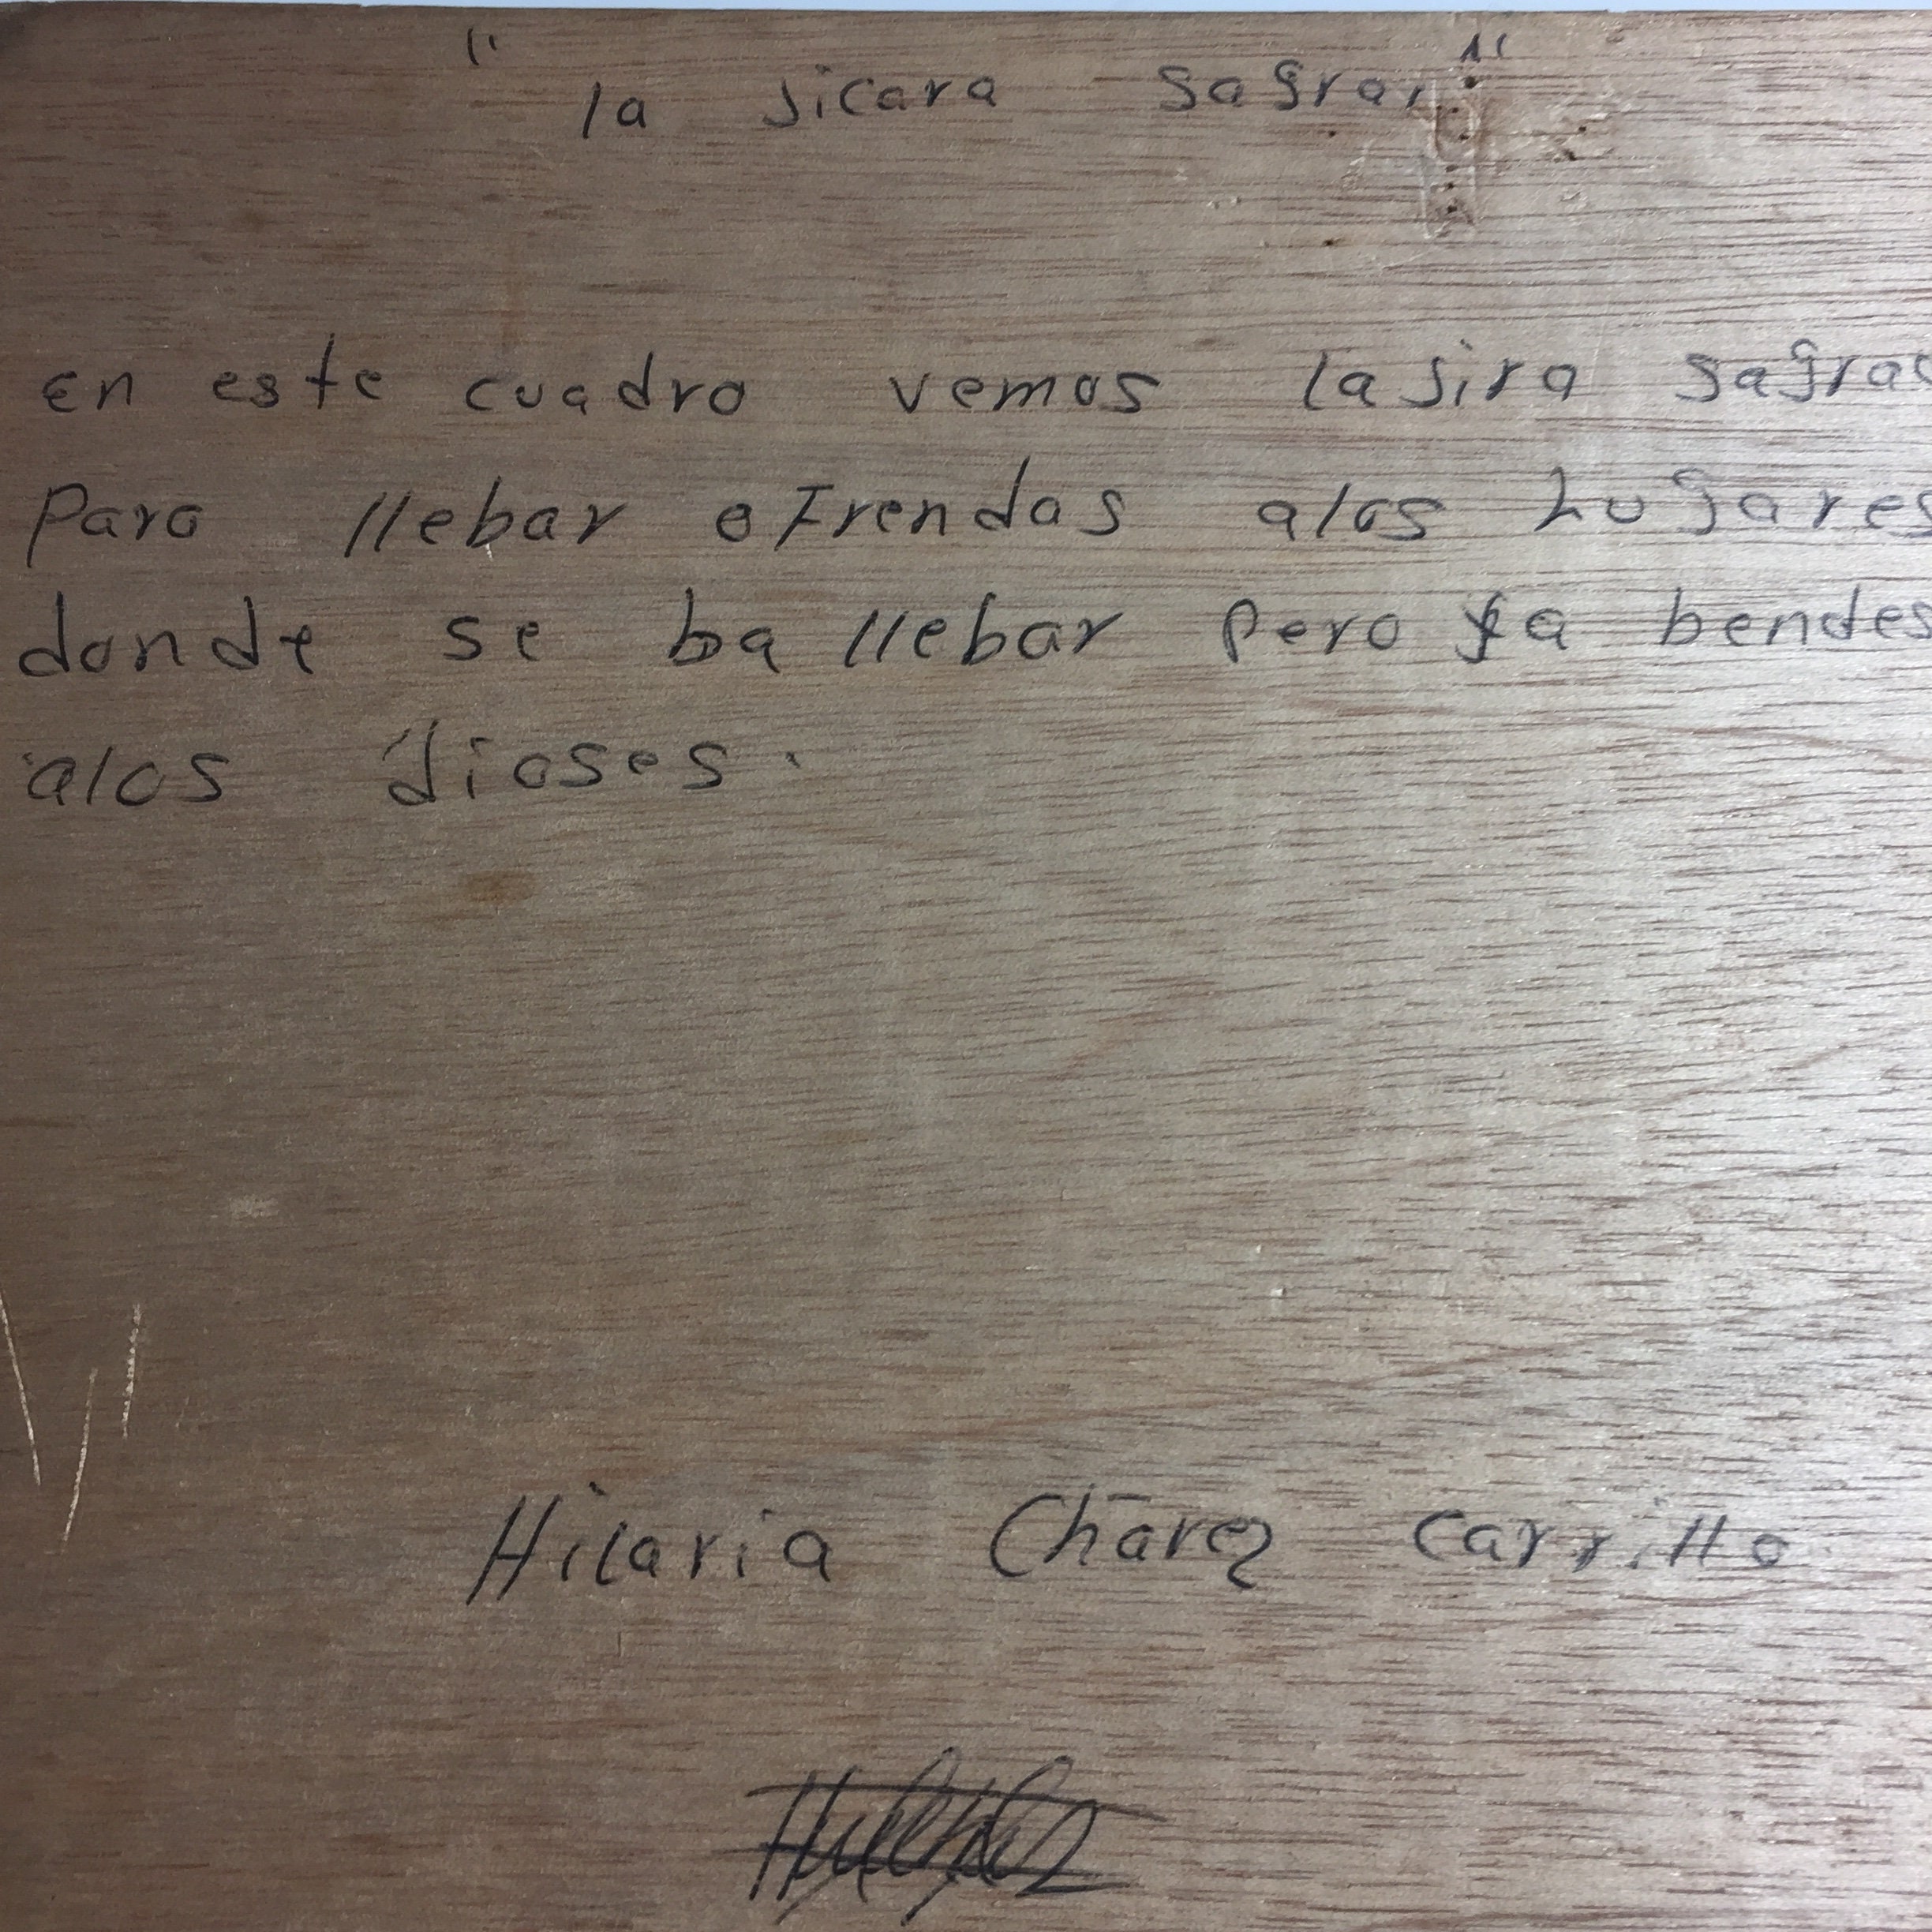 " la Jicara Sagra "
En este cuadro vemos la Jira Sagra
Para llebar ofrendas alos Lugares
donde se ba llebar Pero ya bendes
alos dioses.
Hilaria Chávez Carrillo